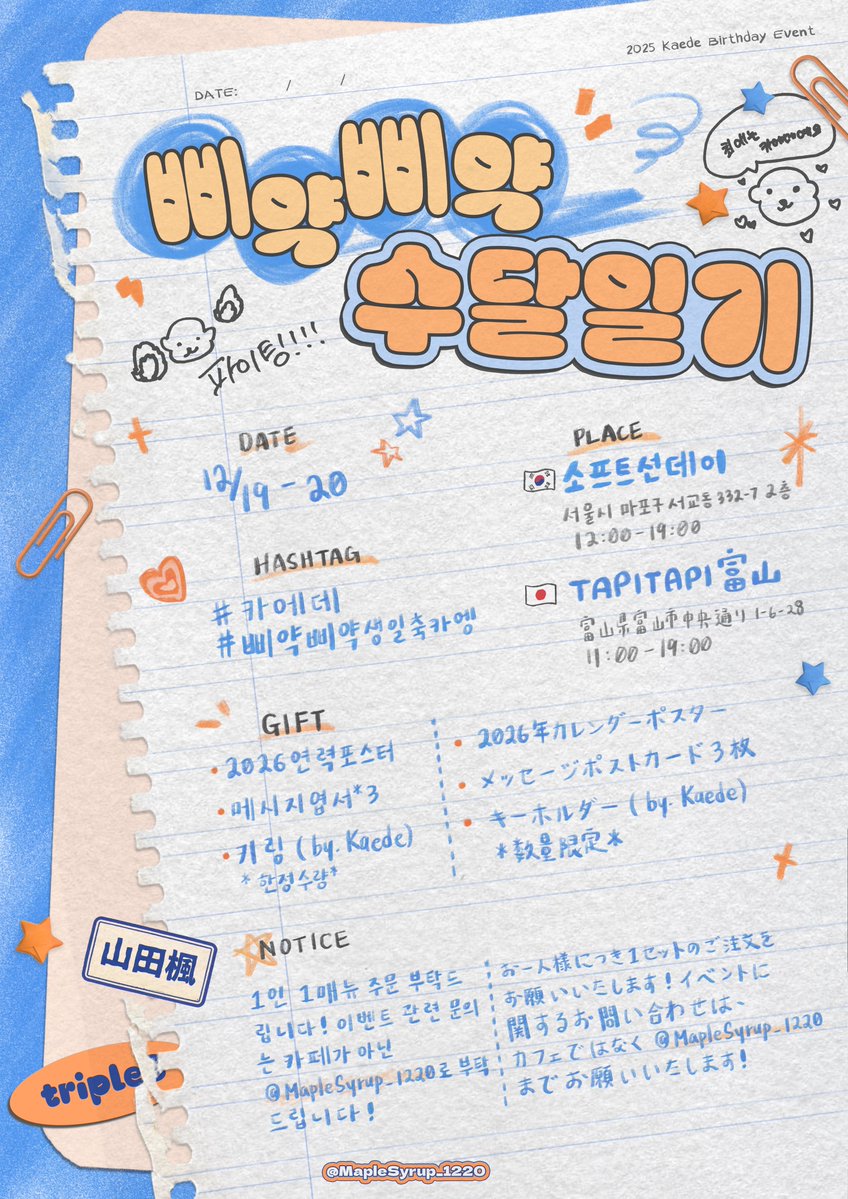 2025 Kaede Birthday Event
DATE: / /
삐약삐약
수달일기
파이팅!!!
DATE
12/19-20
PLACE
소프트선데이
서울시 마포구 서교동 332-7 2층
12:00-19:00
TAPITAPI富山
富山県富山市中央通り 1-6-28
11:00-19:00
HASHTAG
#카에데
#삐약삐약생일축카엥
GIFT
•2026연력포스터
•메시지엽서*3
•키링 (by. Kaede)
*한정수량*
•2026年カレンダーポスター
•メッセージポストカード3枚
•キーホルダー (by. Kaede)
*数量限定*
NOTICE
1인 1메뉴 주문 부탁드
립니다! 이벤트 관련 문의
는 카페가 아닌
@MapleSyrup_1220로 부탁
드립니다!
お一人様につき1セットのご注文を
お願いいたします!イベントに
関するお問い合わせは、
カフェではなく @MapleSyrup_1220
までお願いいたします!
山田楓
triples
@MapleSyrup_1220